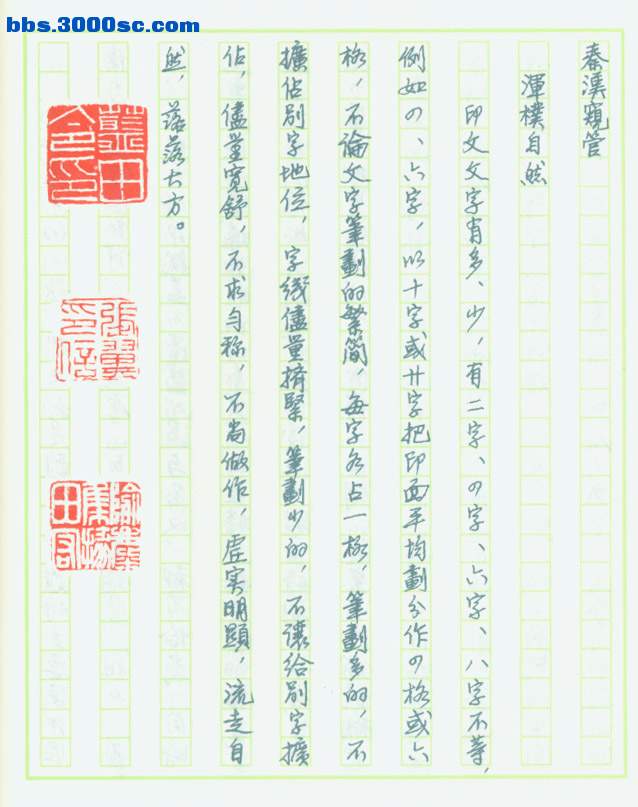 bbs.3000sc.com
秦漢窺管
渾樸自然
印文文字有多、少，有二字、四字、六字、八字不等，
例如四、六字，以十字或廿字把印面平均劃分作四格或六
格，不論文字筆劃的繁簡，每字各占一格，筆劃多的，不
擴佔别字地位，字线儘量擠緊，筆劃少的，不讓給别字擴
佔，儘量寬舒，不求勻称，不尚做作，虚实明顯，流走自
然，落落大方。
張翼
印信